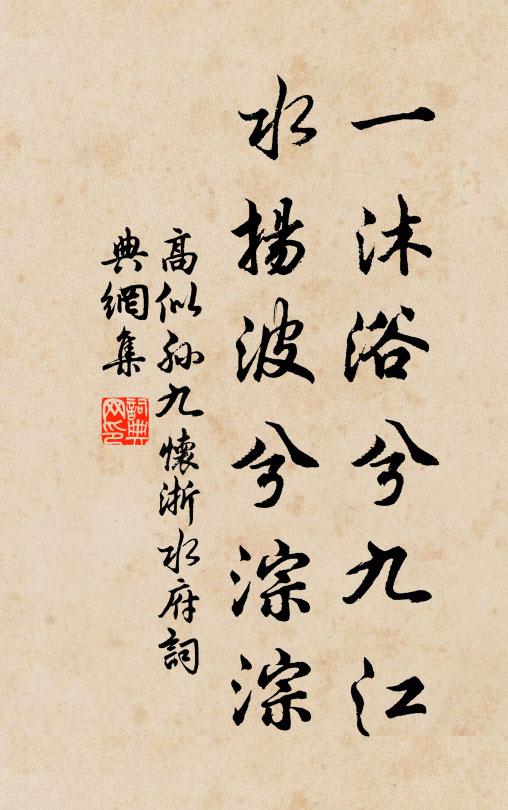 一沐浴兮九江
水揚波兮淙淙
高似孫九懷浙水府詞
典網集
詞典網印